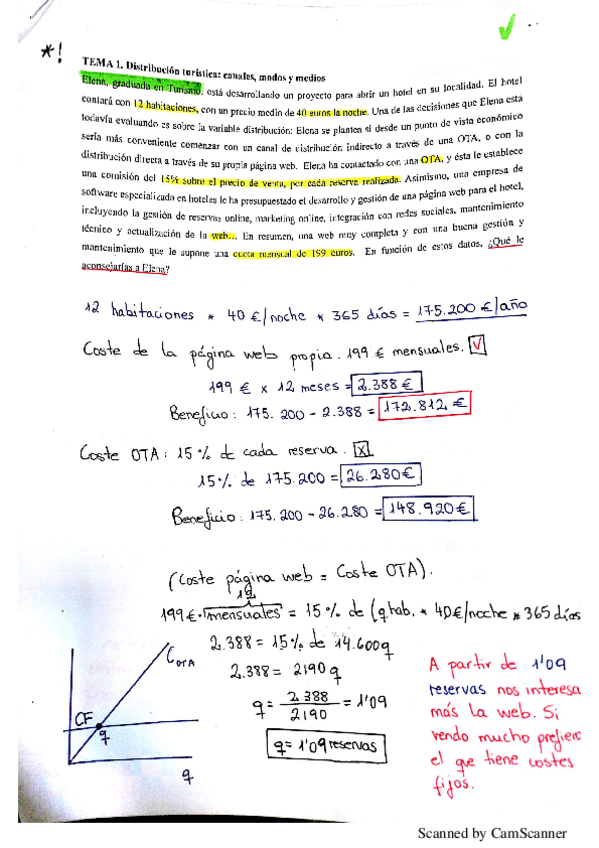 *!
TEMA 1. Distribución turística: canales, modos y medios
Elena, graduada en Turismo, está desarrollando un proyecto para abrir un hotel en su localidad. El hotel
contará con 12 habitaciones, con un precio medio de 40 euros la noche. Una de las decisiones que Elena está
todavía evaluando es sobre la variable distribución: Elena se plantea si desde un punto de vista económico
sería más conveniente comenzar con un canal de distribución indirecto a través de una OTA, o con la
distribución directa a través de su propia página web. Elena ha contactado con una OTA, y ésta le establece
una comisión del 15% sobre el precio de venta, por cada reserva realizada. Asimismo, una empresa de
software especializada en hoteles le ha presupuestado el desarrollo y gestión de una página web para el hotel,
incluyendo la gestión de reservas online, marketing online, integración con redes sociales, mantenimiento
técnico y actualización de la web... En resumen, una web muy completa y con una buena gestión y
mantenimiento que le supone una cuota mensual de 199 euros. En función de estos datos, ¿Qué le
aconsejarías a Elena?
12 habitaciones * 40 €/noche * 365 días = 175.200 €/año
Coste de la página web propia. 199 € mensuales. V
199 € x 12 meses = 2.388 €
Beneficio: 175.200 - 2.388 = 172.812 €
Coste OTA: 15% de cada reserva. X
15% de 175.200 = 26.280 €
Beneficio: 175.200 - 26.280 = 148.920 €
(Coste página web = Coste OTA).
12
199 € · mensuales = 15% de (q hab. * 40 €/noche * 365 días
2.388 = 15% de 14.600q
2.388 = 2190 q
q = 2.388 / 2190 = 1'09
q = 1'09 reservas
COTA
CF
q
q
A partir de 1'09
reservas nos interesa
más la web. Si
vendo mucho prefiero
el que tiene costes
fijos.
Scanned by CamScanner